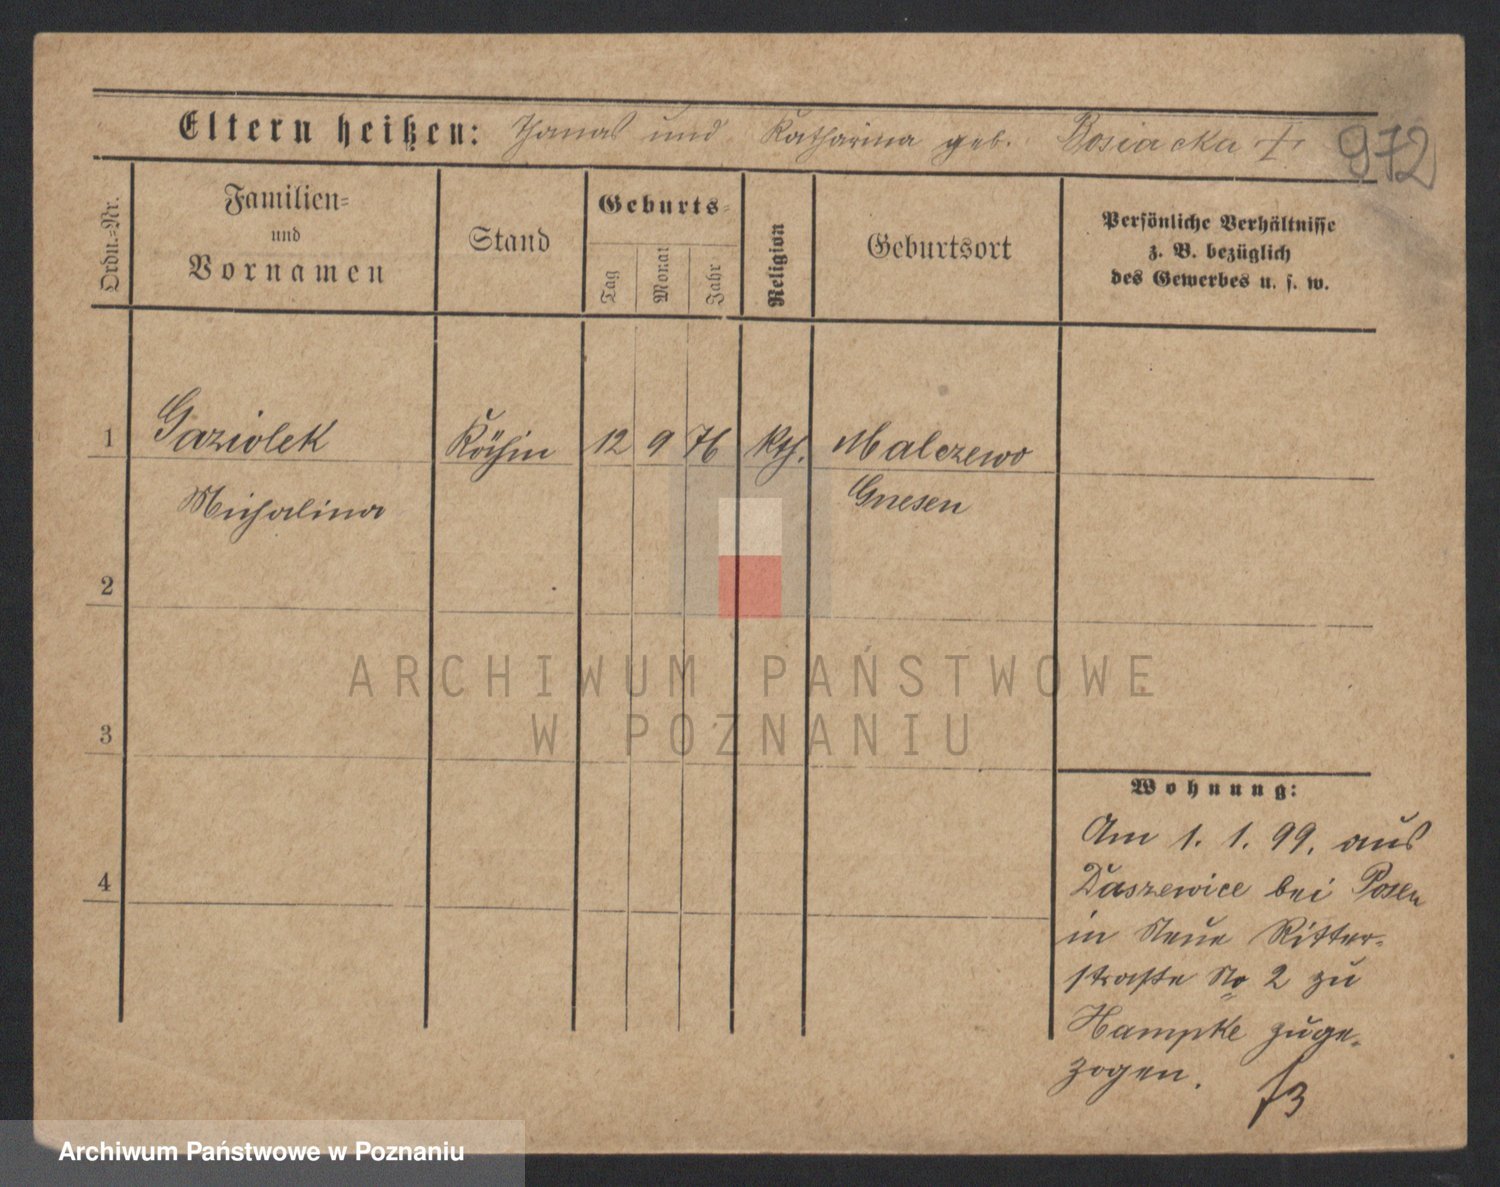 Eltern heißen: Thomas und Katharina geb. Bosiacka †
972
Ordn.=Nr.
Familien=
und
Vornamen
Stand
Geburts=
Tag
Monat
Jahr
Religion
Geburtsort
Persönliche Verhältnisse
z. B. bezüglich
des Gewerbes u. s. w.
1 Gaziolek Köchin 12 9 76 kth. Malczewo
Michalina Gnesen
2
3
4
Wohnung:
Am 1. 1. 99. aus
Daszewice bei Posen
in Neue Ritter-
straße No 2 zu
Hampke zuge-
zogen.
ARCHIWUM PAŃSTWOWE
W POZNANIU
Archiwum Państwowe w Poznaniu